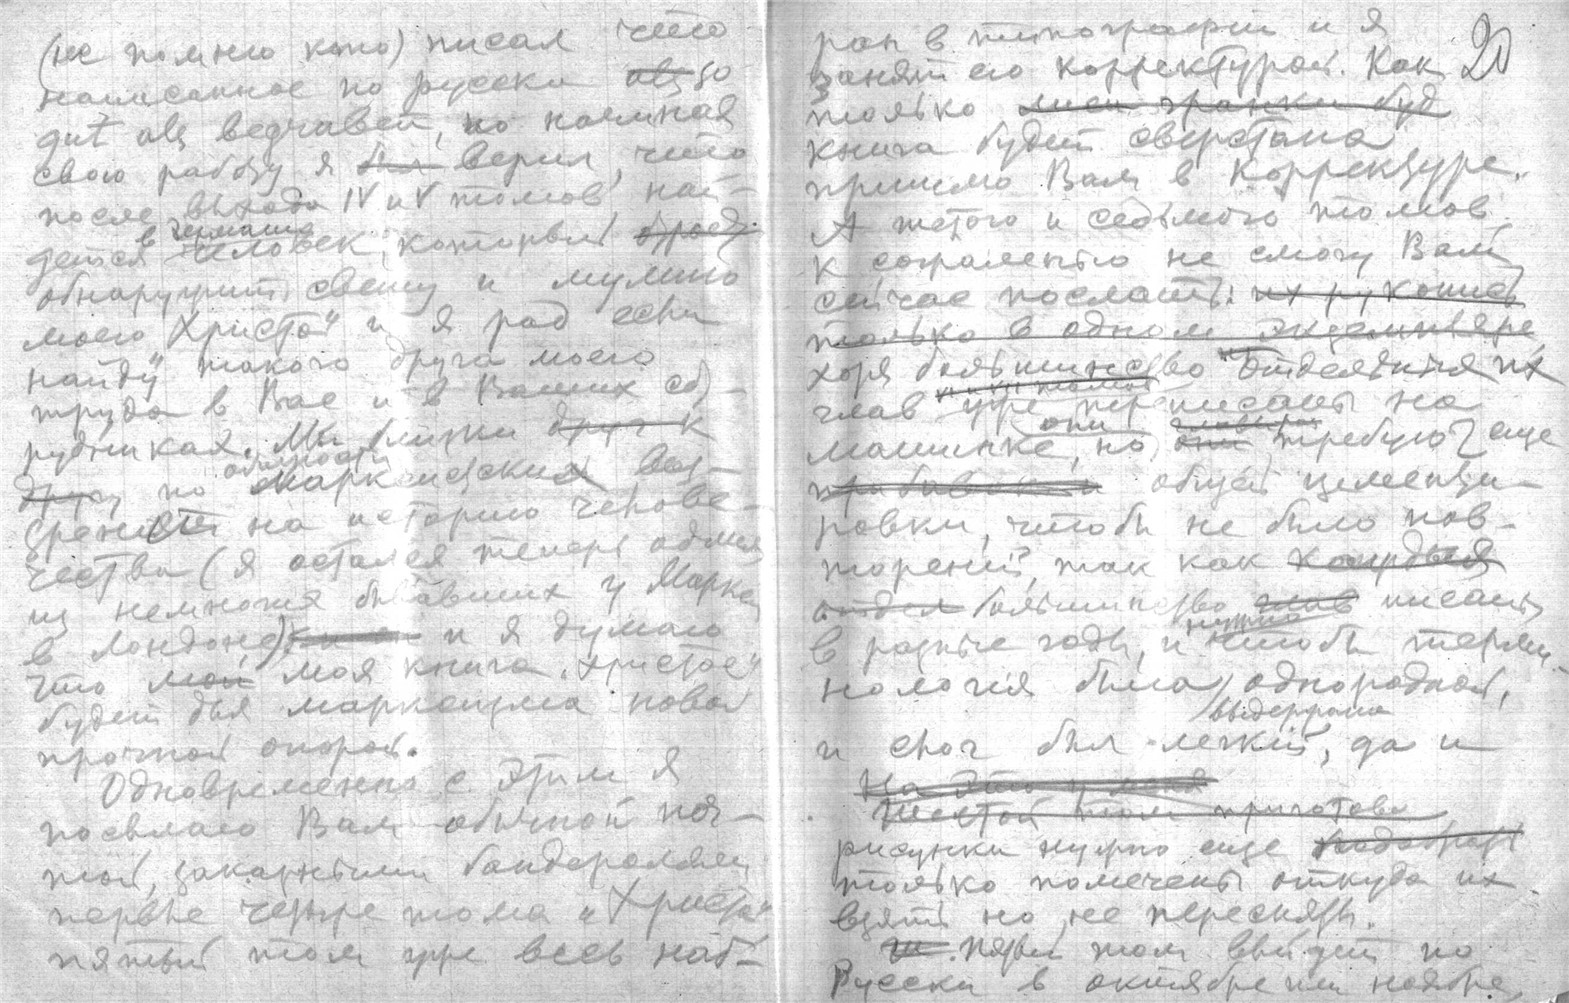 (не помню кто) писал что
написанное по русски als so
gut als begraben, но начиная
свою работу я был верил, что
после выхода IV и V томов най-
дется в Германии человек, который
обнаружит свещу и мумию
моего „Христа“ и я рад если
найду такого друга моего
труда в Вас и в Ваших сот-
рудниках. Мы близки друг к
другу по общности марксистских воз-
зрений на историю челове-
чества (я остался теперь одним
из немногих бывавших у Маркса
в Лондоне) и я думаю
что мой моя книга „Христос“
будет для марксизма новой
прочной опорой.
Одновременно с этим я
посылаю Вам обычной поч-
той, заказными бандеролями
первые четыре тома „Христа“
пятый том уже весь наб-
20
ран в типографии и я
занят его корректурой. Как
только гранки буд
книга будет сверстана
пришлю Вам в корректуре.
А шестого и седьмого томов
к сожалению не смогу Вам
сейчас послать: их рукопись
только в одном экземпляре
хотя большинство отдельных их
глав уже переписаны на
машинке, но они требуют еще
общей цементи-
ровки, чтобы не было пов-
торений, так как каждая
отдел большинство глав писаны
в разные годы, и нужно чтобы терми-
нология была однородной,
выдержана
и слог был легкий, да и
На это у меня
Шестой том приготовл
рисунки нужно еще подобрать
только помечены откуда их
взять но не пересняты.
Пятый том выйдет по
Русски в октябре или ноябре.